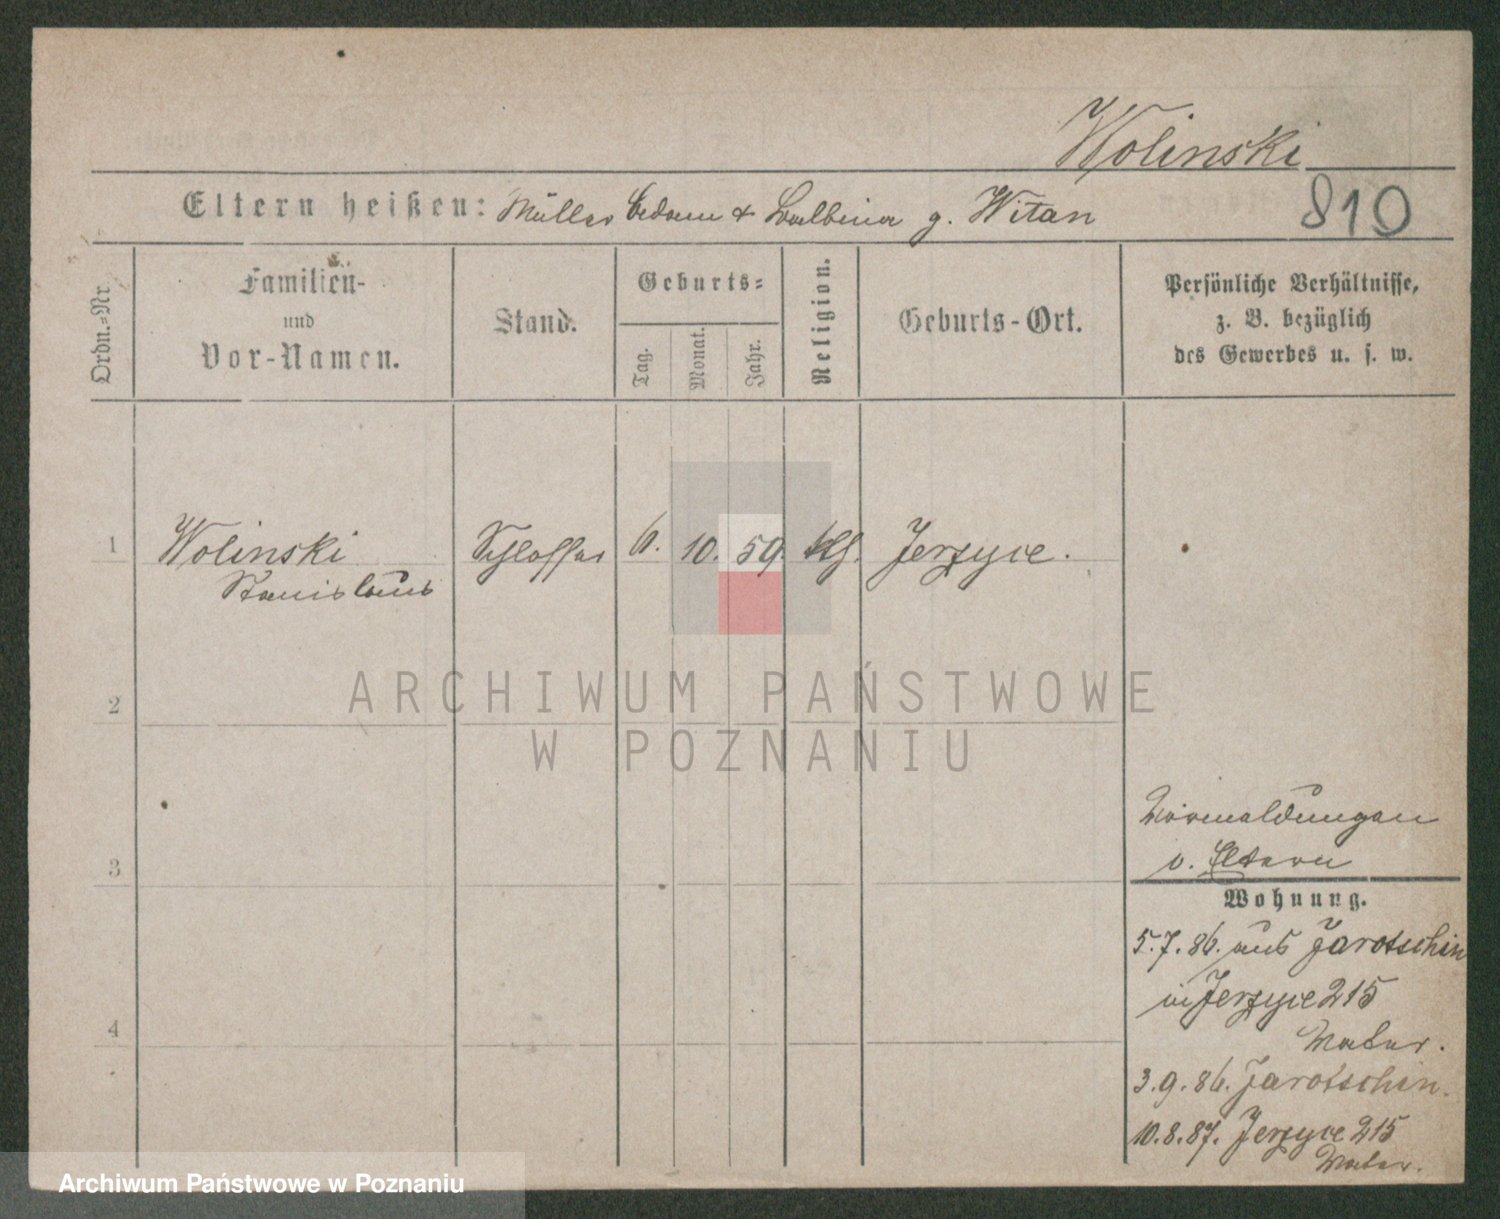 Wolinski
Eltern heißen: Müller Adam & Balbina g. Witan
810
Ordn.=Nr.
Familien-
und
Vor-Namen.
Stand.
Geburts=
Tag.
Monat.
Jahr.
Religion.
Geburts-Ort.
Persönliche Verhältnisse,
z. B. bezüglich
des Gewerbes u. s. w.
1
Wolinski
Stanislaus
Schlosser
6. 10. 59.
Jerzyce.
2
3
4
v. Eltern
Wohnung.
5.7.86. aus Jarotschin
in Jerzyce 215
3.9.86. Jarotschin.
10.8.87. Jerzyce 215
ARCHIWUM PAŃSTWOWE
W POZNANIU
Archiwum Państwowe w Poznaniu